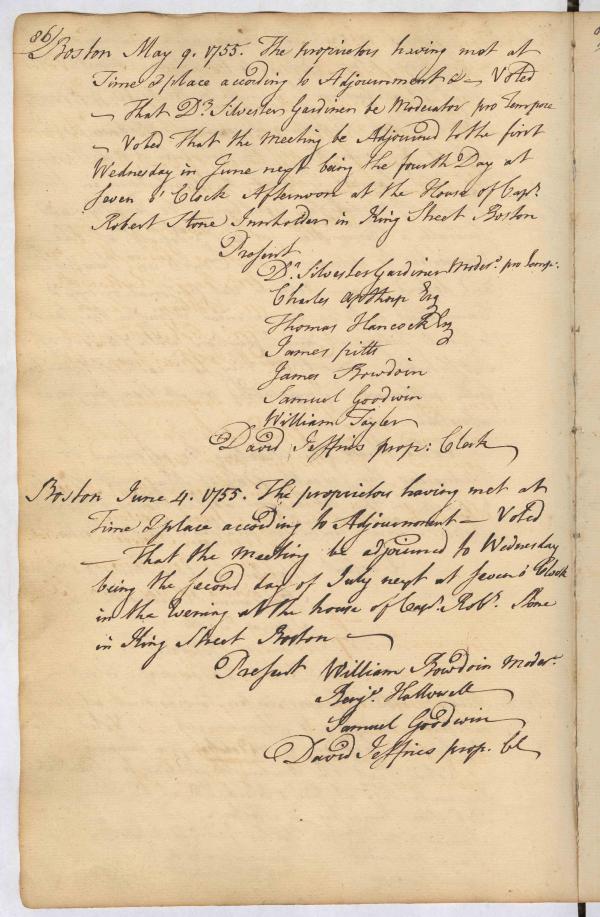 86
Boston May 9. 1755. The proprietors having met at
Time & place according to Adjournment &c — Voted
— That Dr. Silvester Gardiner be Moderator pro Tempore
— Voted That the Meeting be Adjourned to the first
Wednesday in June next being the fourth Day at
Seven o' Clock Afternoon at the House of Capt.
Robert Stone Innholder in King Street Boston
Present
Dr. Silvester Gardiner Moder. pro Temp:
Charles Apthorp Esq
Thomas Hancock Esq
James pitts
James Bowdoin
Samuel Goodwin
William Tayler
David Jeffries prop: Clerk
Boston June 4. 1755. The proprietors having met at
Time & place according to Adjournment — Voted
— That the Meeting be adjourned to Wednesday
being the second day of July next at seven o' Clock
in the Evening at the house of Capt. Robt. Stone
in King Street Boston —
Present William Bowdoin Moder.
Benj. Hallowell
Samuel Goodwin
David Jeffries prop. Cl